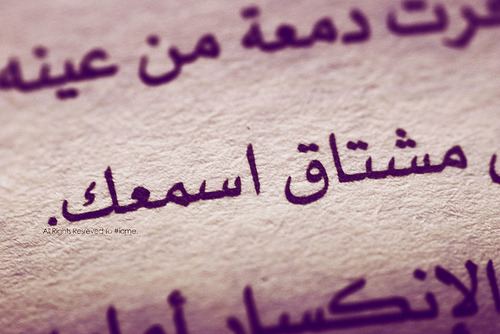 دمعة من عينه
مشتاق اسمعك.
All Rights Reserved to #iame.
الإنكسار